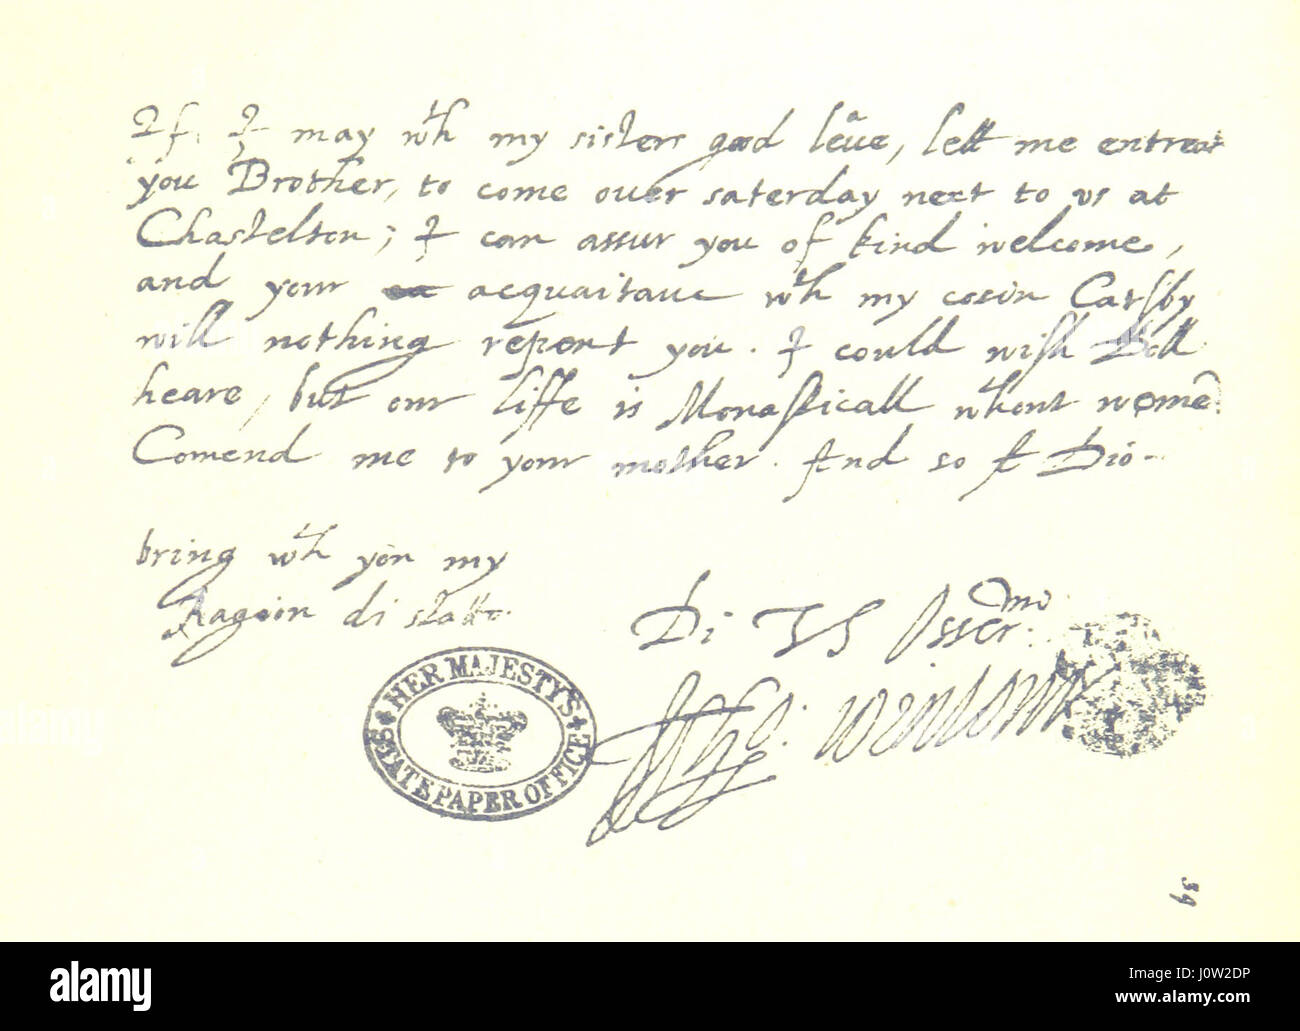 If I may wth my sisters good leave, lett me entreat
you Brother, to come over saterday next to us at
Chastelton; I can assur you of kind welcome,
and your acquaitauc wth my cosin Catsby
will nothing repent you. I could wish Doll
heare, but our liffe is Monasticall wthout women
Comend me to your mother. And so A Dio-
bring wth yon my
Ragion di stato
Di VS Osser.mo
Ro: wintour
HER MAJESTY'S
STATE PAPER OFFICE
39
alamy
J0W2DP
www.alamy.com